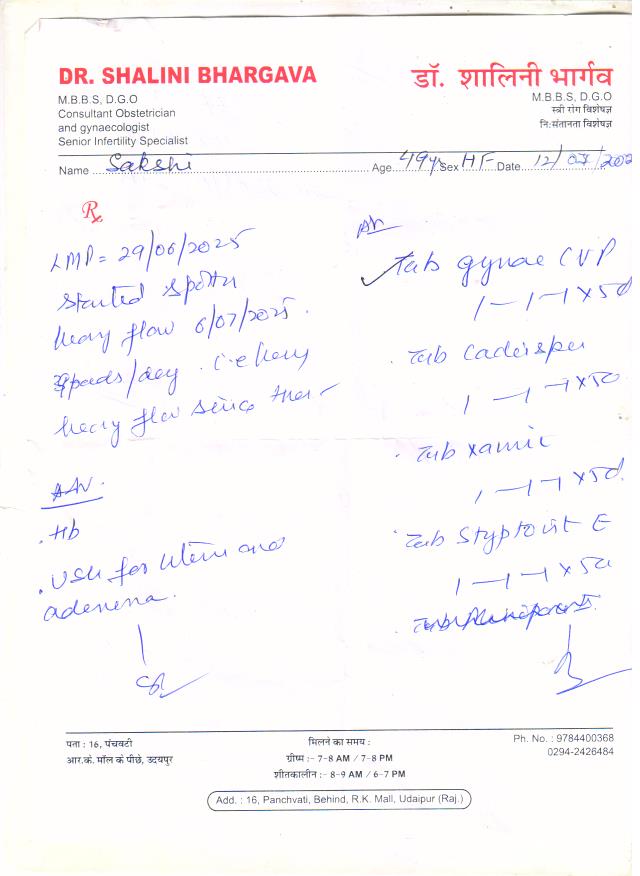 DR. SHALINI BHARGAVA
M.B.B.S, D.G.O
Consultant Obstetrician
and gynaecologist
Senior Infertility Specialist
डॉ. शालिनी भार्गव
M.B.B.S, D.G.O
स्त्री रोग विशेषज्ञ
नि:संतानता विशेषज्ञ
Name Sakshi Age 49yr Sex HF Date 12/07/202
Rx
LMP = 29/06/2025
started spottn
heavy flow 6/07/2025.
pads/day i.e heavy
heavy flow since then
Adv.
. Hb
. USG for uterus and
adenexa.
Adv
✓ Tab gynae CVP
1-1-1 x 5d
. Tab Cadisper
1-1-1 x 5d
. Tab xamic
1-1-1 x 5d.
. Tab Styptovit E
1-1-1 x 5d
. Tab
पता : 16, पंचवटी
आर.के. मॉल के पीछे, उदयपुर
मिलने का समय :
ग्रीष्म :- 7-8 AM / 7-8 PM
शीतकालीन :- 8-9 AM / 6-7 PM
Ph. No. : 9784400368
0294-2426484
Add. : 16, Panchvati, Behind, R.K. Mall, Udaipur (Raj.)